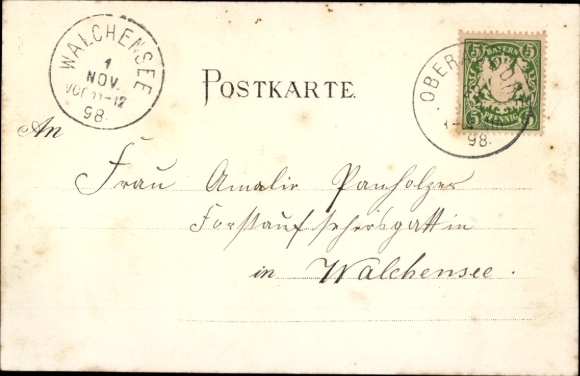 WALCHENSEE
1
NOV.
VOR. 11-12
98.
POSTKARTE.
OBER
98.
5 BAYERN 5
5 PFENNIG 5
An
Frau Amalie Panholzer
Forstaufsehersgattin
in Walchensee.